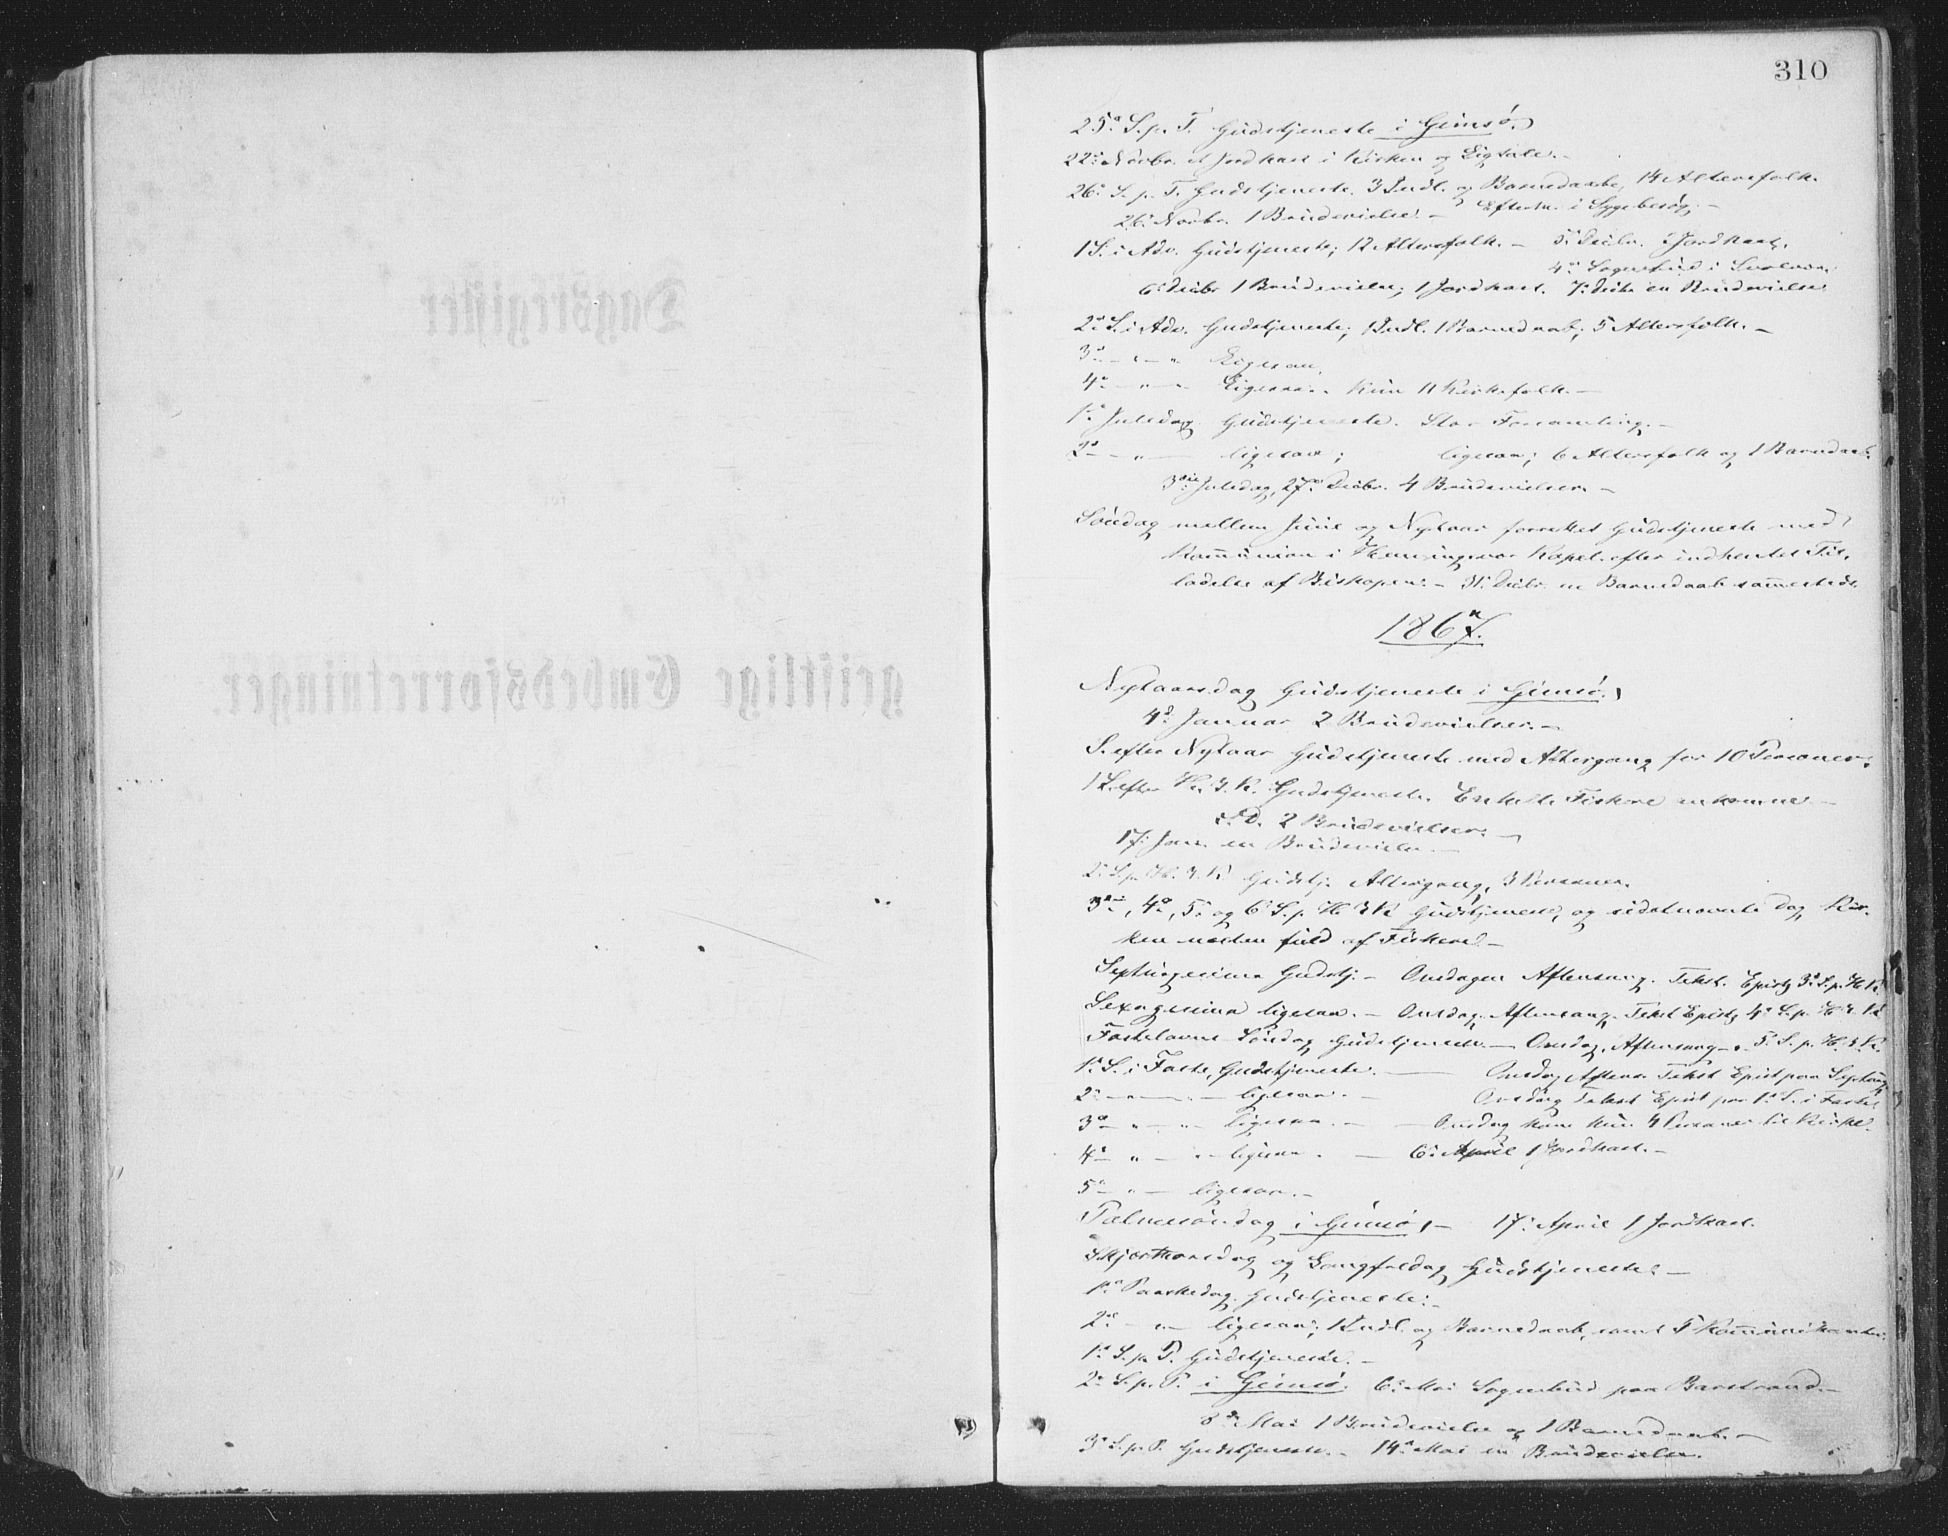 310
25ª S. p. T. Gudstjeneste i Gimsø.
22: Novbr. et Jordkast i Kirken og Ligtale. –
26ª S. p. T. Gudstjeneste. 3 Indl. og Barnedaabe, 14 Altersfolk.
26: Novbr. 1 Brudevielse. – Efterm. i Sygebesøg. –
1 S. i Adv. Gudstjeneste; 12 Altersfolk. – 5: Decbr. 1 Jordkast.
4: Sognebud i Svolvær.
6: Decbr 1 Brudevielse; 1 Jordkast. 7: Decbr en Brudevielse
2ª S. i Adv. Gudstjeneste; 1 Indl. 1 Barnedaab; 5 Altersfolk. –
3ª – " – " Ligesaa.
4ª – " – " Ligesaa. Kun 11 Kirkefolk. –
1ª Juledag Gudstjeneste. Stor Forsamling. –
2ª – " – ligesaa; ligesaa; 6 Altersfolk og 1 Barnedaab.
3die Juledag, 27ª Decbr. 4 Brudevielser. –
Søndag mellem Juul og Nytaar forrettet Gudstjeneste med
Kommunion i Henningsvær Kapel efter indhentet Til-
ladelse af Biskopen. – 31: Decbr. en Barnedaab sammesteds.
1867.
Nytaarsdag Gudstjeneste i Gimsø.
4ª Januar 2 Brudevielser. –
S. efter Nytaar Gudstjeneste med Altergang for 10 Personer.
1 S. efter H. 3 K. Gudstjeneste. Enkelte Fiskere ankomne. –
s. D. 2 Brudevielser. –
17: Jan. en Brudevielse. –
2: S. p. H. 3. K. Gudstj. Altergang, 3 Personer.
3die, 4ª, 5: og 6: S. p. H. 3 K. Gudstjeneste, og sidstnævnte Dag Kir-
ken næsten fuld af Fiskere. –
Septuagesima Gudstj. – Onsdagen Aftensang. Tekst. Epist. 3ª S. p. H. K.
Sexagesima ligesaa. – Onsdag. Aftensang. Tekst Epist. 4ª S. p. H. 3. K.
Fastelavns-Søndag Gudstjeneste. – Onsdag. Aftensang – " 5. S. p. H. 3. K.
1ª S. i Faste, Gudstjeneste. – Onsdag Aftens. Tekst Epist paa Septuag.
2: – " – " – ligesaa. – Onsdag Tekst Epist paa 1ª S. i Faste
3ª – " – " – ligesaa. – – Onsdag kom kun 4 Personer til Kirke.
4ª " – " – ligesaa. – 6: April 1 Jordkast. –
5ª – " – ligesaa. –
Palmesøndag i Gimsø, – 17: April 1 Jordkast.
Skjærthorsdag og Langfredag Gudstjeneste. –
1ª Paaskedag. Gudstjeneste. –
2: – " – ligesaa; 1 Indl. og Barnedaab, samt 7 Kommunikanter.
1ª S. p. P. Gudstjeneste. –
2: S. p. P. i Gimsø. 6: Mai Sognebud paa Barstrand. –
8: Mai 1 Brudevielse og 1 Barnedaab. –
3ª S. p. P. Gudstjeneste. – 14ª Mai en Brudevielse.